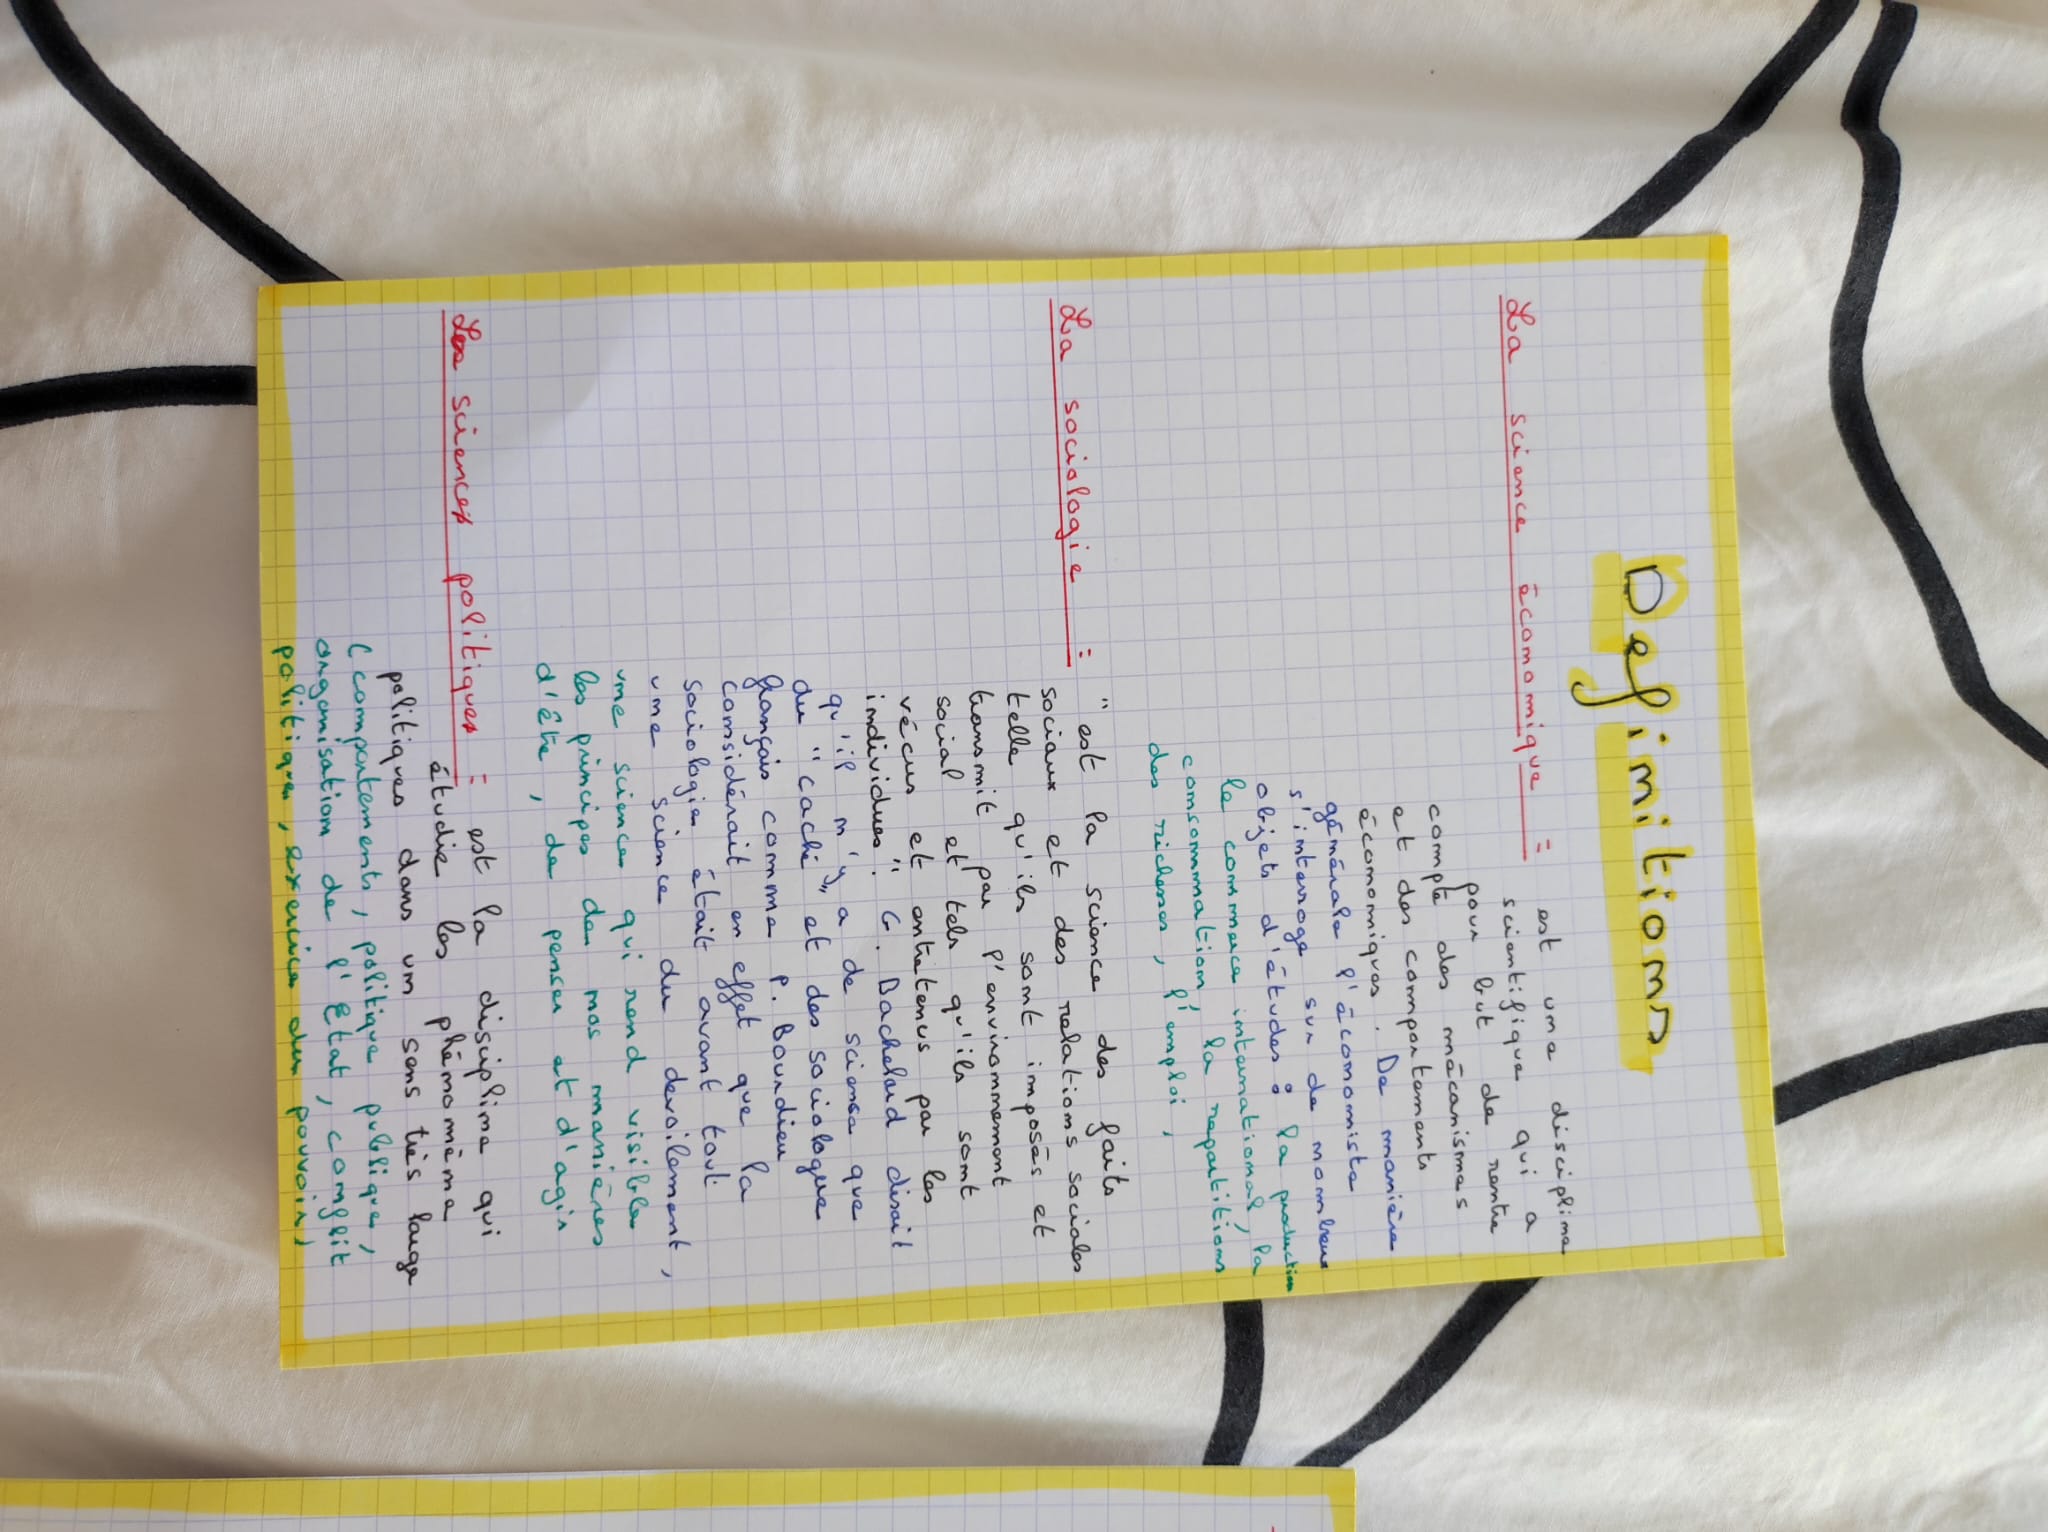 Definitions
La science économique : est une discipline
scientifique qui a
pour but de rentre
compte des mécanismes
et des comportements
économiques. De manière
générale l'économiste
s'interroge sur de nombreux
objets d'études : la production
le commerce international, la
consommation, la repartitions
des richesses, l'emploi,
La sociologie : "est la science des faits
sociaux et des relations sociales
telle qu'ils sont imposés et
transmit par l'environnement
social et tels qu'ils sont
vécus et entretenus par les
individues". G. Bachelard disait
qu'il n'y a de science que
du "caché" et des sociologue
français comme P. Bourdieu
considérait en effet que la
sociologie était avant tout
une science du devoilement,
une science qui rend visible
les principes de nos manières
d'être, de penser et d'agir
Les sciences politiques : est la discipline qui
étudie les phénomème
politiques dans un sens très large
(comportements, politique publique,
organisation de l'Etat, conflit
politique, exercice du pouvoir,